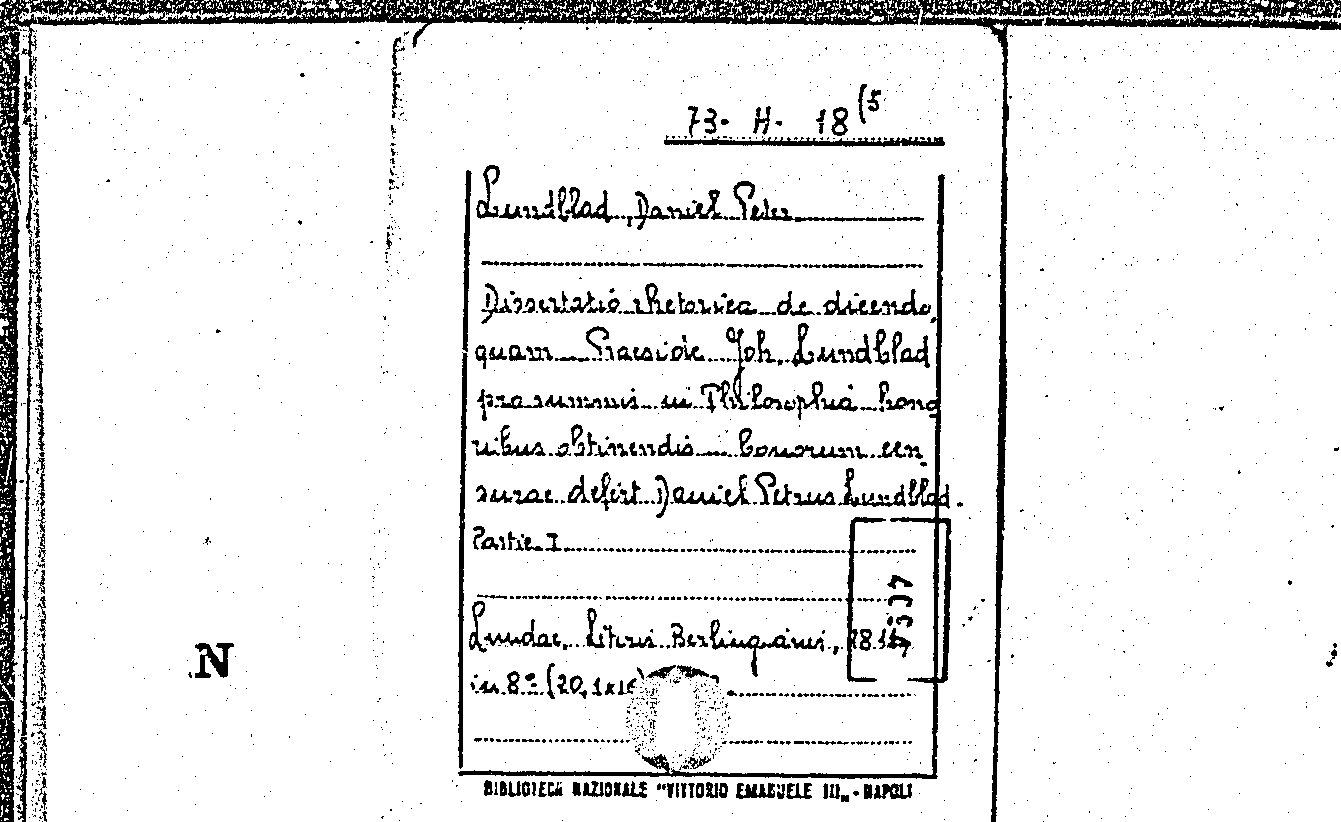 73- H- 18 (5
Lundblad, Daniel Peter
Dissertatio rhetorica de dicendo,
quam Praeside Joh. Lundblad
pro summis in Philosophia hono
ribus obtinendis bonorum cen
surae defert Daniel Petrus Lundblad.
Partie I
Lundae, Literis Berlingianis,
in 8º (20,1x16
N
BIBLIOTECA NAZIONALE "VITTORIO EMANUELE III„ - NAPOLI